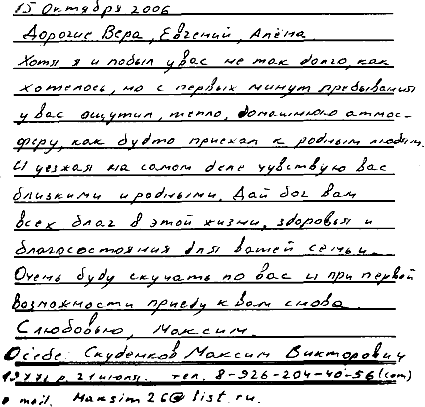 15 Октября 2006
Дорогие Вера, Евгений, Алёна.
Хотя я и побыл у вас не так долго, как
хотелось, но с первых минут пребывания
у вас ощутил, тепло, домашнюю атмос-
феру, как будто приехал к родным людям.
И уезжая на самом деле чувствую вас
близкими и родными. Дай бог вам
всех благ в этой жизни, здоровья и
благосостояния для вашей семьи.
Очень буду скучать по вас и при первой
возможности приеду к вам снова.
С любовью, Максим.
О себе: Скуденков Максим Викторович
1977г.р. 21 июля. тел. 8-926-204-40-56 (сот)
e mail. Maksim26@list.ru.